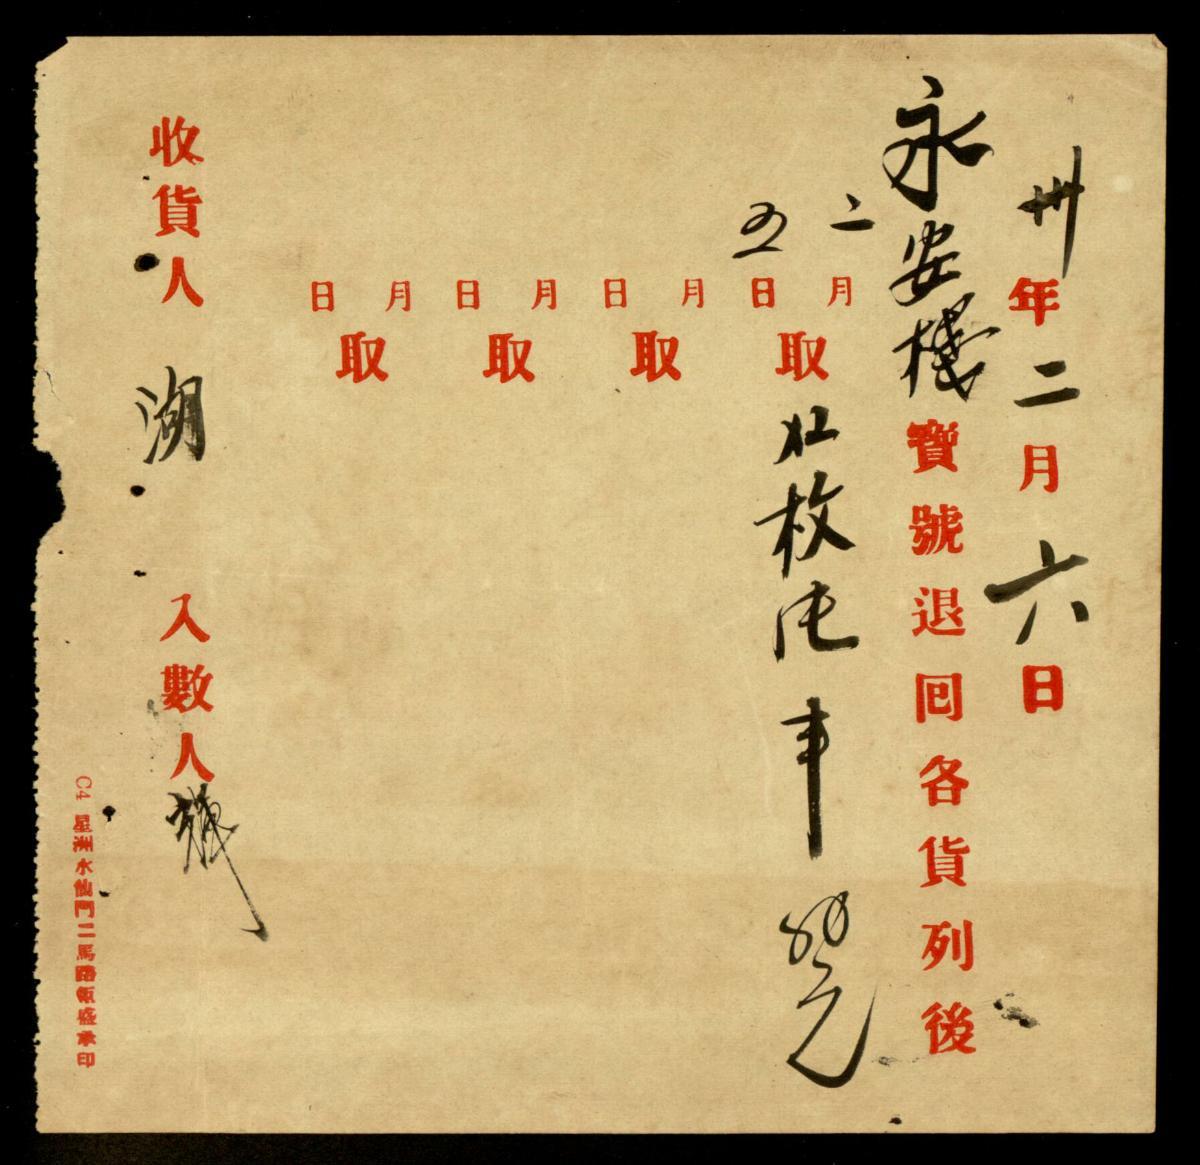 卅年二月六日
永安棧寶號退回各貨列後
二月五日取
枚
月日取
月日取
月日取
收貨人 湖 入數人
C4 星洲水仙門二馬路毓盛承印